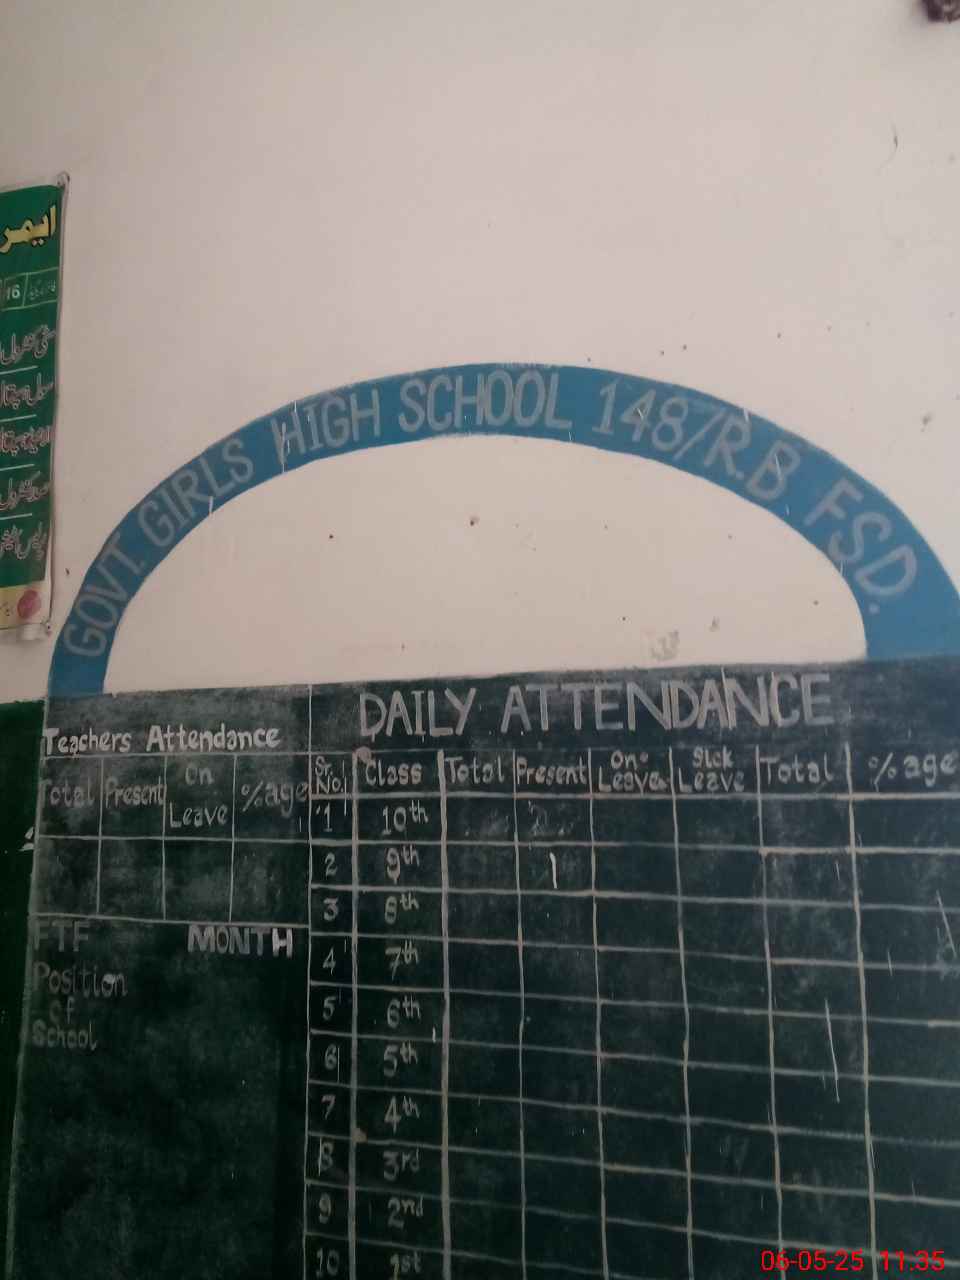 ایمر
16
سٹی کنٹرول
سول ہسپتا
الائیڈ ہسپتا
صدر کنٹرول
GOVT. GIRLS HIGH SCHOOL 148/R.B FSD.
DAILY ATTENDANCE
Teachers Attendance
Total Present On Leave %age
Sr. No. Class Total Present On Leave Sick Leave Total %age
1 10th
2 9th
3 8th
4 7th
5 6th
6 5th
7 4th
8 3rd
9 2nd
10 1st
FTF MONTH
Position
Sf
School
06-05-25 11.35